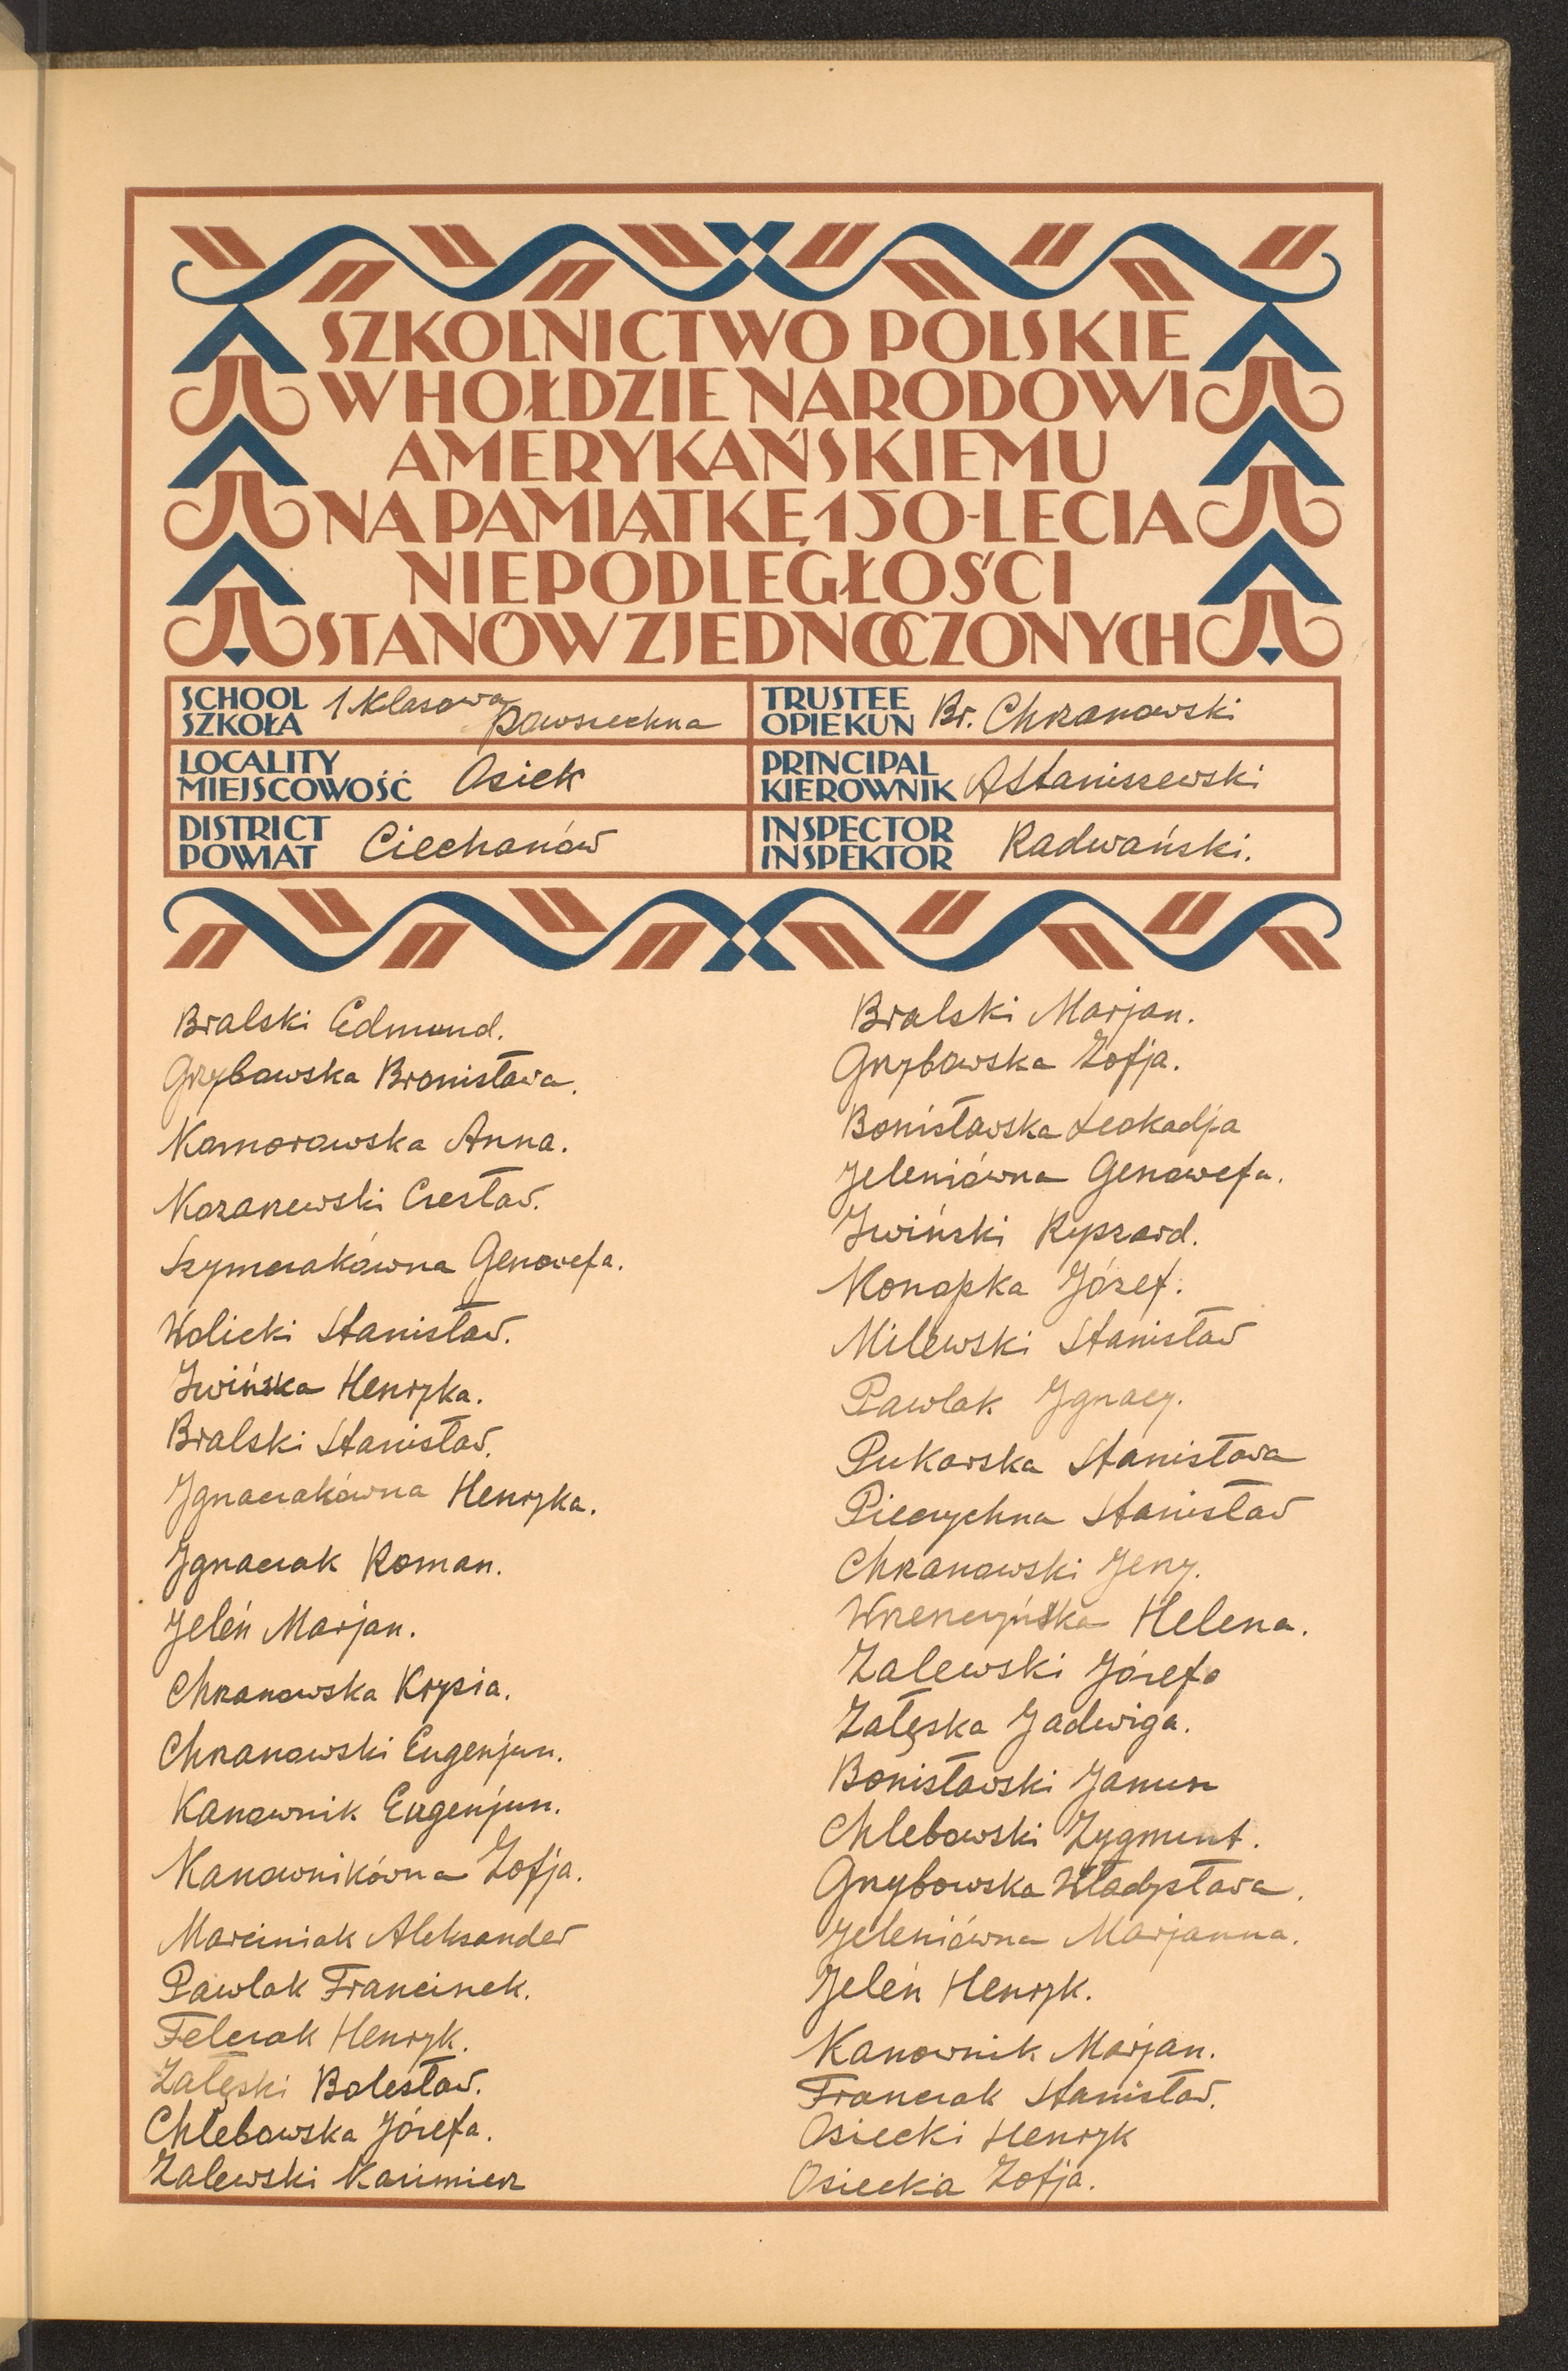 SZKOLNICTWO POLSKIE
W HOŁDZIE NARODOWI
AMERYKAŃSKIEMU
NA PAMIĄTKĘ 150-LECIA
NIEPODLEGŁOŚCI
STANÓW ZJEDNOCZONYCH
SCHOOL
SZKOŁA
1 klasowa
powszechna
TRUSTEE
OPIEKUN
Br. Chrzanowski
LOCALITY
MIEJSCOWOŚĆ
Osiek
PRINCIPAL
KIEROWNIK
AStaniszewski
DISTRICT
POWIAT
Ciechanów
INSPECTOR
INSPEKTOR
Radwański.
Bralski Edmund.
Grzybowska Bronisława.
Komorowska Anna.
Kozarzewski Czesław.
Szymczakówna Genowefa.
Wolicki Stanisław.
Iwińska Henryka.
Bralski Stanisław.
Ignaczakówna Henryka.
Ignaczak Roman.
Jeleń Marjan.
Chrzanowska Krysia.
Chrzanowski Eugenjusz.
Kanownik Eugenjusz.
Kanownikówna Zofja.
Marciniak Aleksander
Pawlak Franciszek.
Felczak Henryk.
Załęski Bolesław.
Chlebowska Józefa.
Zalewski Kazimierz
Bralski Marjan.
Grzybowska Zofja.
Bonisławska Leokadja
Jeleniówna Genowefa.
Iwiński Ryszard.
Konopka Józef.
Milewski Stanisław
Pawlak Ignacy.
Pukarska Stanisława
Pieczychna Stanisław
Chrzanowski Jerzy.
Helena.
Zalewski Józefa
Załęska Jadwiga.
Bonisławski Janusz
Chlebowski Zygmunt.
Grzybowska Władysława.
Jeleniówna Marjanna.
Jeleń Henryk.
Kanownik Marjan.
Franczak Stanisław.
Osiecki Henryk
Osiecka Zofja.